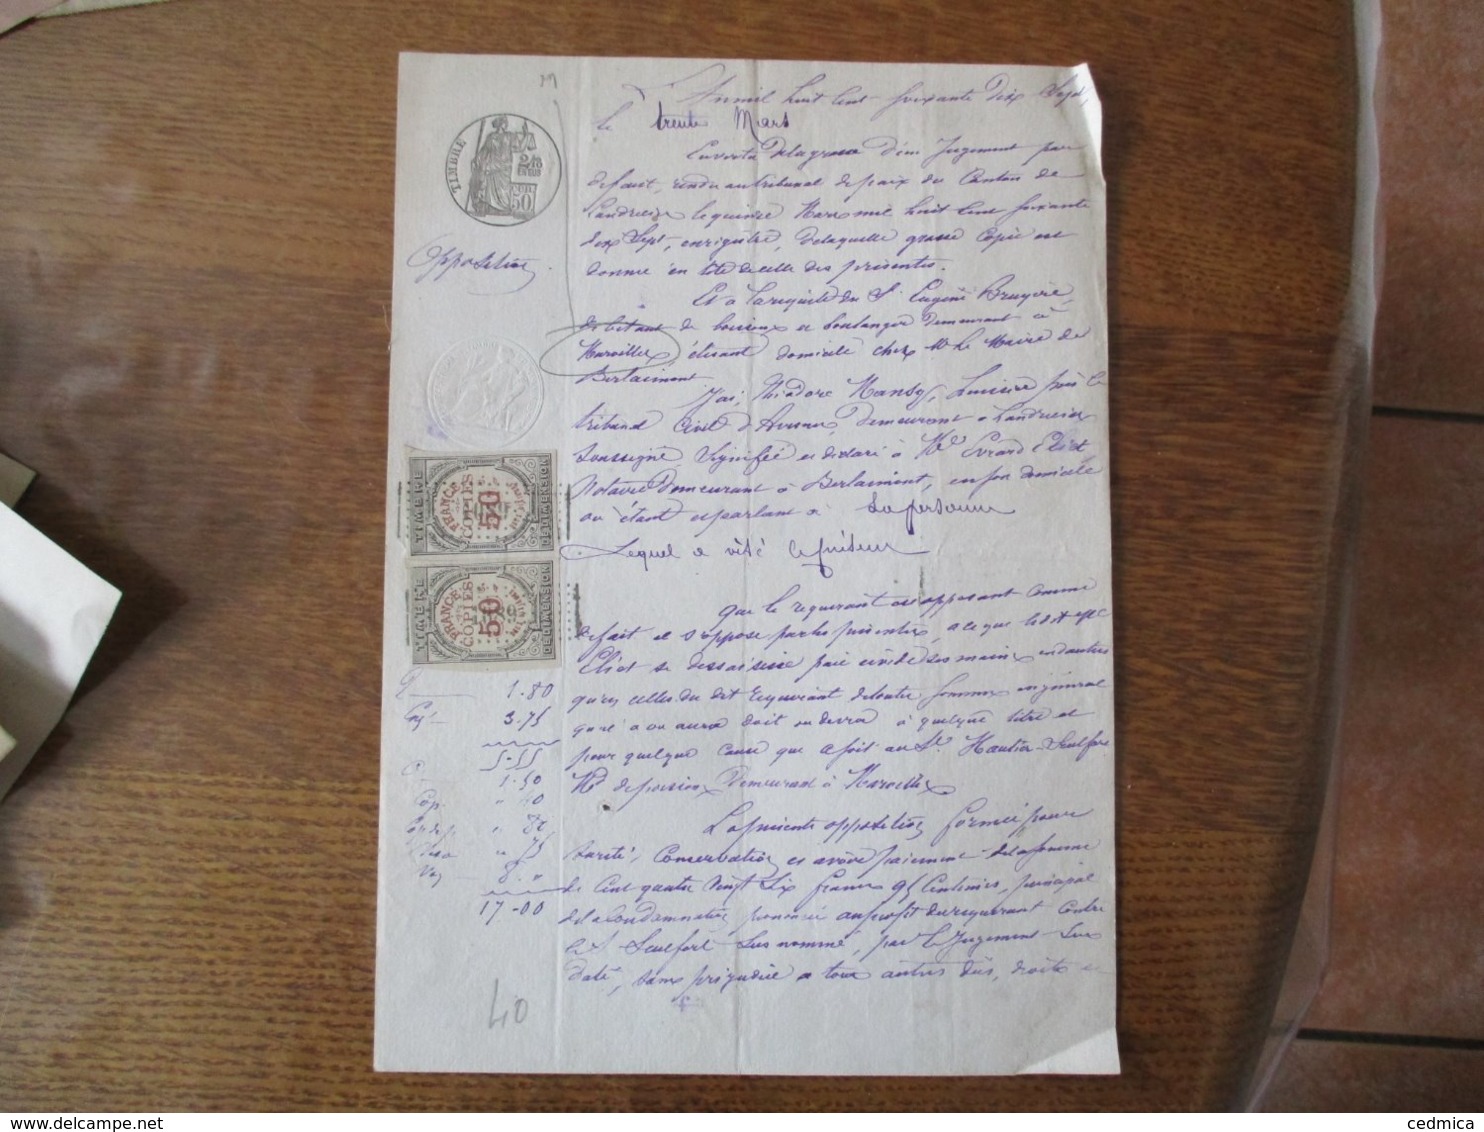 L'An mil huit cent soixante dix Sept,
le trente Mars
En vertu de la grosse d'un Jugement par
defaut, rendu au tribunal de paix du Canton de
Landrecies le quinze Mars mil huit cent soixante
dix Sept, enrigistré, de laquelle grosse copie est
donnée en tête de celle des présentes.
Et à la requête du Sr. Eugène Bruyère,
debitant de boissons et boulanger demeurant à
Maroilles, élisant domicile chez Mr le Maire de
Berlaimont
J'ai, Théodore Mansy, huissier près le
tribunal Civil d'Avesnes, demeurant à Landrecies
soussigné, Signifié et déclaré à Me Evrard Eliot
Notaire demeurant à Berlaimont, en son domicile
où étant et parlant à sa personne
Lequel a visé le présent
que le requérant est opposant comme
de fait il s'oppose par les présentes, à ce que le dit Me
Eliot se dessaisisse paie ou vide ses mains en d'autres
qu'en celles du dit requérant de toutes sommes en général
qu'il a ou aura doit ou devra à quelque titre et
pour quelque cause que ce soit au Sr. Hautier-Seulfort
Md de poissons, demeurant à Maroilles
La présente opposition formée pour
sureté, Conservation et avoir paiement de la somme
de Cent quatre vingt six francs 95 Centimes, principal
de la Condamnation prononcée au profit du requérant contre
le Sr Seulfort sus nommé, par le Jugement sus
daté, sans préjudice à tous autres dûs, droits et
TIMBRE
2/10
EN SUS
50
Opposition
TIMBRE
FRANCE
COPIES
50
DEDIMENSION
TIMBRE
FRANCE
COPIES
50
DEDIMENSION
1.80
3.75
5-55
1.50
Cop. " 40
" 75
8. "
17-00
40
cedmica